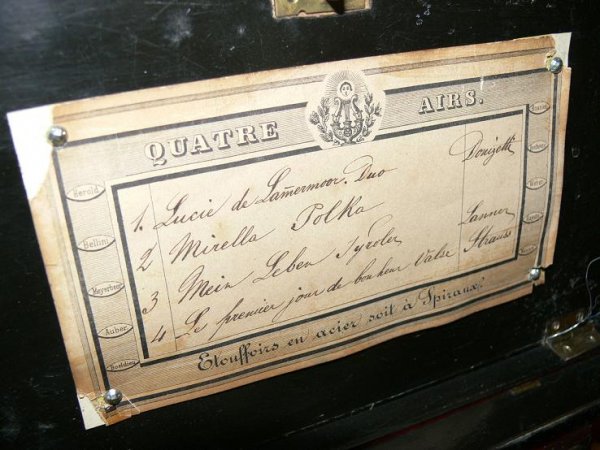 QUATRE AIRS.
1. Lucie de Lamermoor. Duo Donizetti
2 Mirella Polka
3 Mein Leben Tyroler Lanner
4 Le premier jour de bonheur Valse Strauss
Etouffoirs en acier soit à Spiraux.
Herold
Bellini
Meyerbeer
Auber
Boieldieu